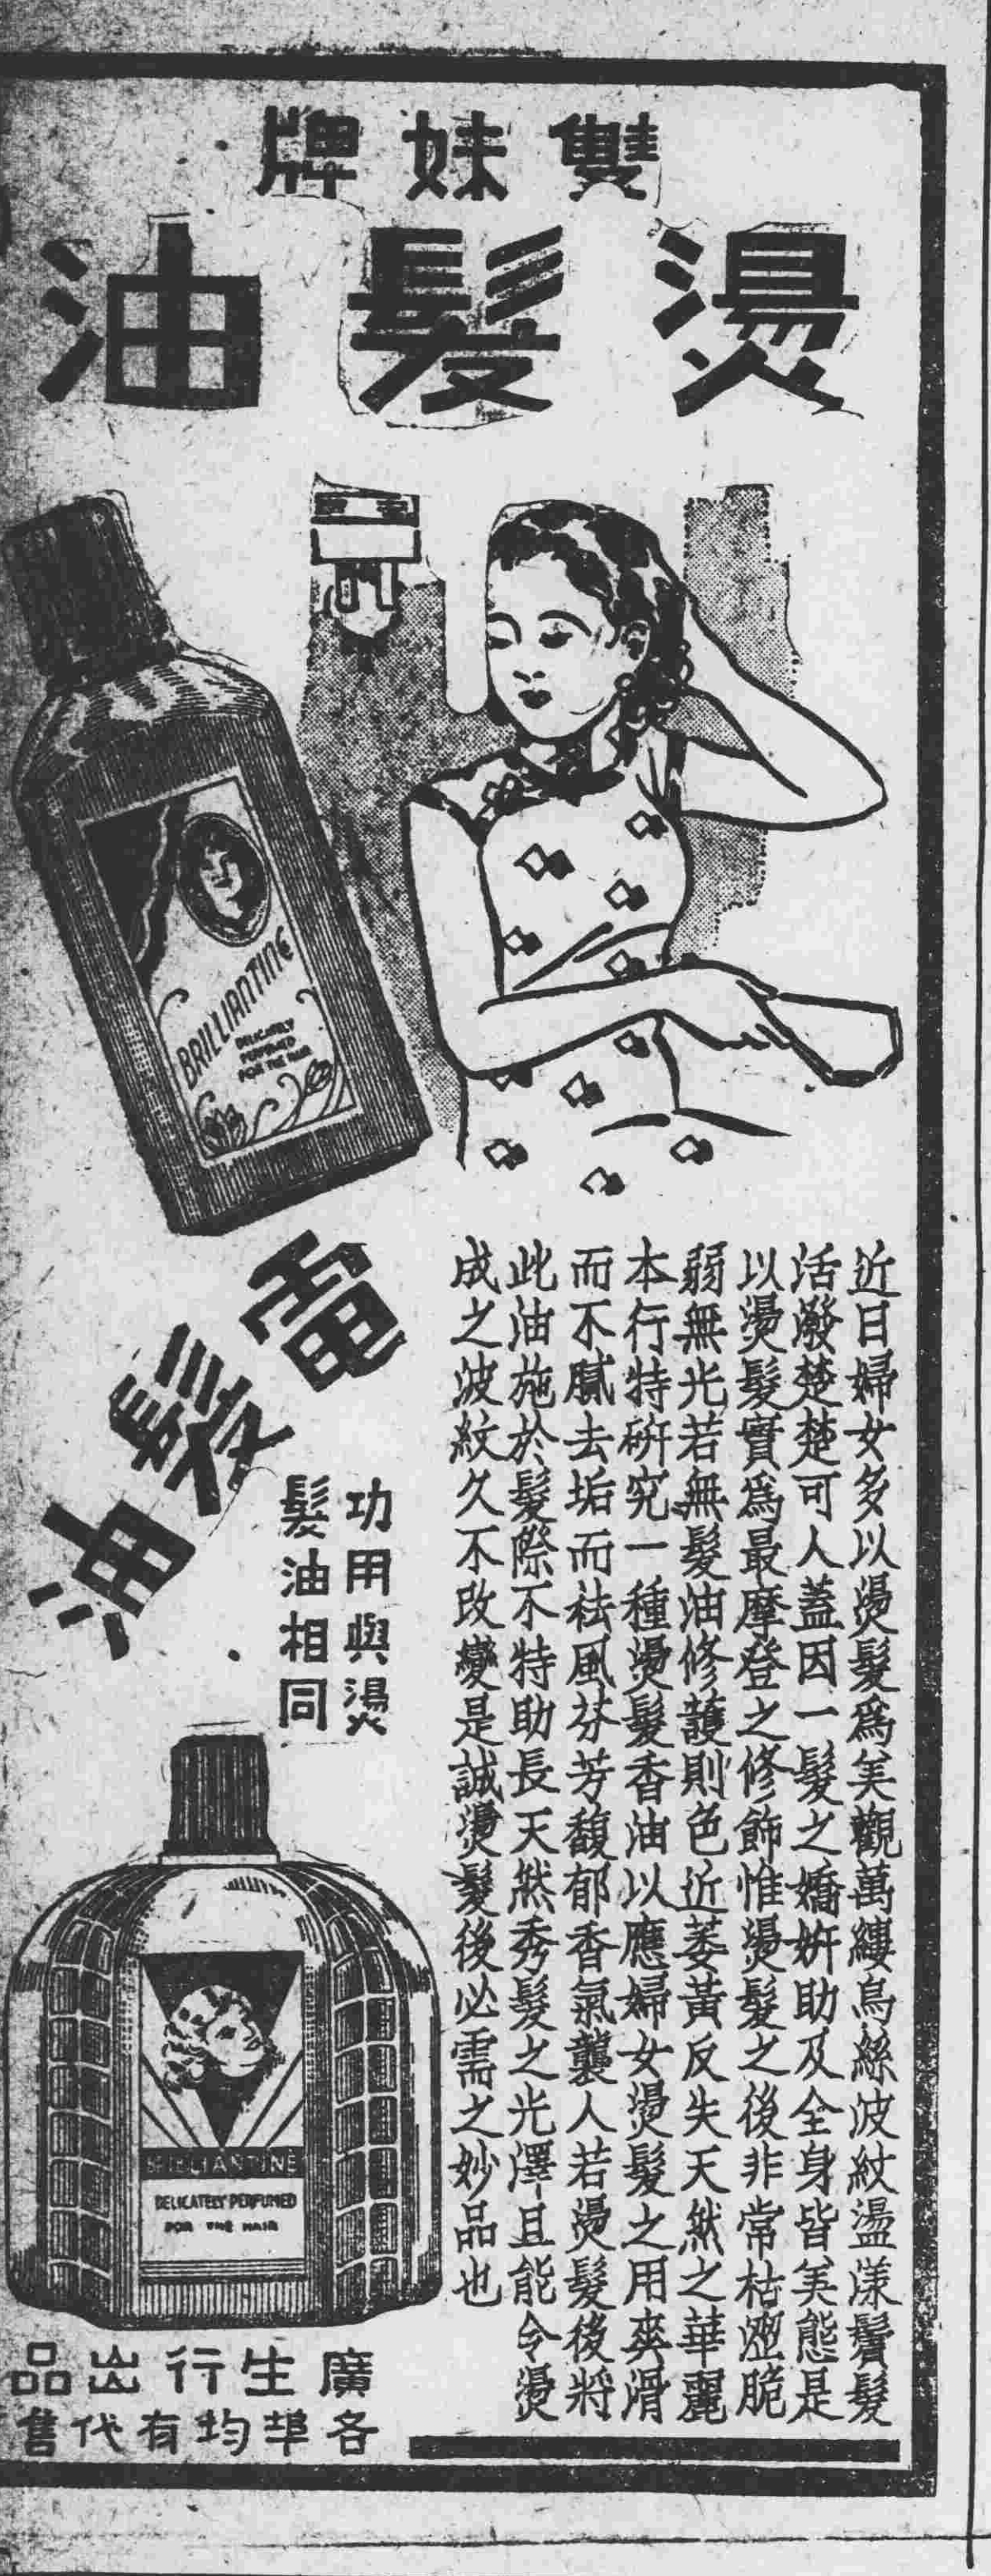 雙妹牌
燙髮油
BRILLIANTINE
DELICATELY
PERFUMED
FOR THE HAIR
近日婦女多以燙髮爲美觀萬縷烏絲波紋盪漾鬢髮
活潑楚楚可人蓋因一髮之嬌妍助及全身皆美態是
以燙髮實爲最摩登之修飾惟燙髮之後非常枯澀脆
弱無光若無髮油修護則色近萎黃反失天然之華麗
本行特硏究一種燙髮香油以應婦女燙髮之用爽滑
而不膩去垢而祛風芬芳馥郁香氣襲人若燙髮後將
此油施於髮際不特助長天然秀髮之光澤且能令燙
成之波紋久不改變是誠燙髮後必需之妙品也
電髮油
功用與燙
髮油相同
BRILLIANTINE
DELICATELY PERFUMED
FOR THE HAIR
廣生行出品
各埠均有代售